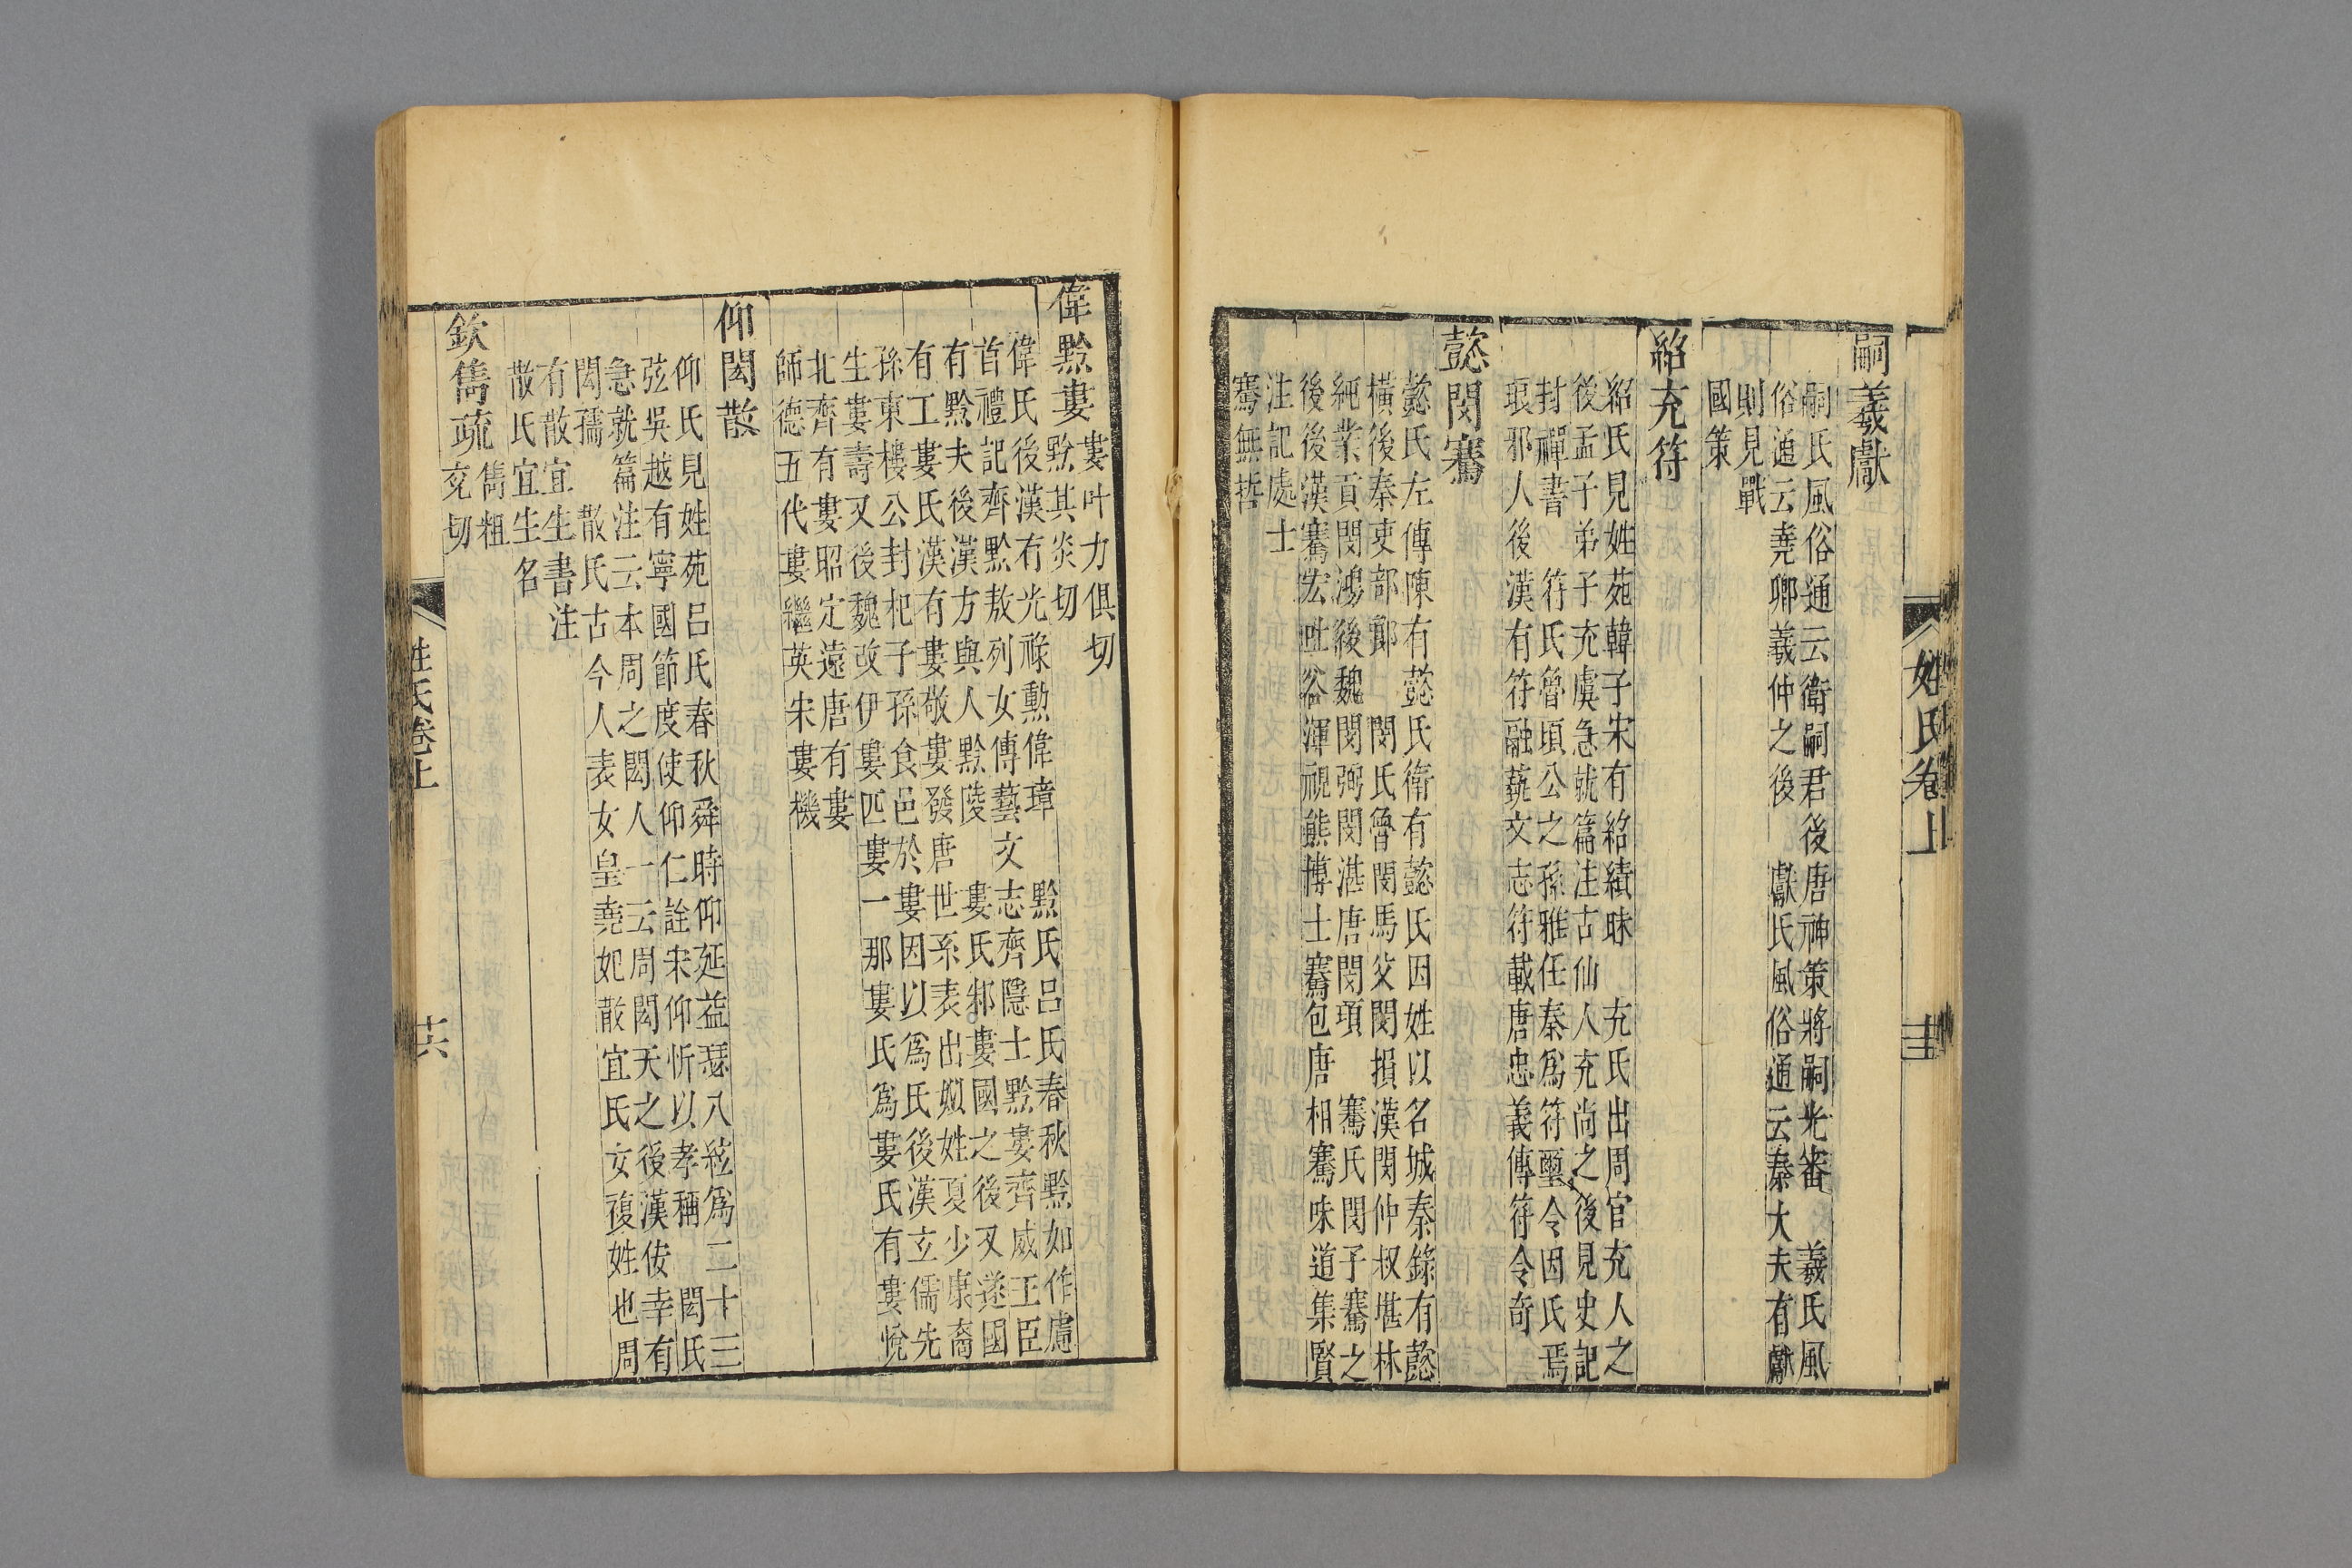 姓氏卷上
嗣羲獻
嗣氏風俗通云衛嗣君後唐神策將嗣光審　羲氏風
俗通云堯卿羲仲之後　獻氏風俗通云秦大夫有獻
則見戰
國策
紹充符
紹氏見姓苑韓子宋有紹績昧　充氏出周官充人之
後孟子弟子充虞急就篇注古仙人充尚之後見史記
封禪書　符氏魯頃公之孫雅任秦爲符璽令因氏焉
琅邪人後漢有符融藝文志符載唐忠義傳符令奇
懿閔騫
懿氏左傳陳有懿氏衛有懿氏因姓以名城秦錄有懿
橫後秦吏部郞　閔氏魯閔馬父閔損漢閔仲叔堪林
純業貢閔鴻後魏閔弼閔湛唐閔頊　騫氏閔子騫之
後後漢騫宏吐谷渾視熊博士騫包唐相騫味道集賢
注記處士
騫無哲
偉黔婁
婁叶力俱切
黔其炎切
偉氏後漢有光祿勳偉璋　黔氏呂氏春秋黔如作慮
首禮記齊黔敖列女傳藝文志齊隱士黔婁齊威王臣
有黔夫後漢方與人黔陵　婁氏邾婁國之後又遂國
有工婁氏漢有婁敬婁發唐世系表出姒姓夏少康裔
孫東樓公封杞子孫食邑於婁因以爲氏後漢玄儒先
生婁壽又後魏改伊婁匹婁一那婁氏爲婁氏有婁悅
北齊有婁昭定遠唐有婁
師德五代婁繼英宋婁機
仰閎散
仰氏見姓苑呂氏春秋舜時仰延益瑟八絃爲二十三
弦吳越有寧國節度使仰仁詮宋仰忻以孝稱　閎氏
急就篇注云本周之閎人一云周閎夭之後漢佞幸有
閎孺　散氏古今人表女皇堯妃散宜氏女複姓也周
有散宜生書注
散氏宜生名
欽雋疏
雋粗
兖切
姓氏卷上
十六